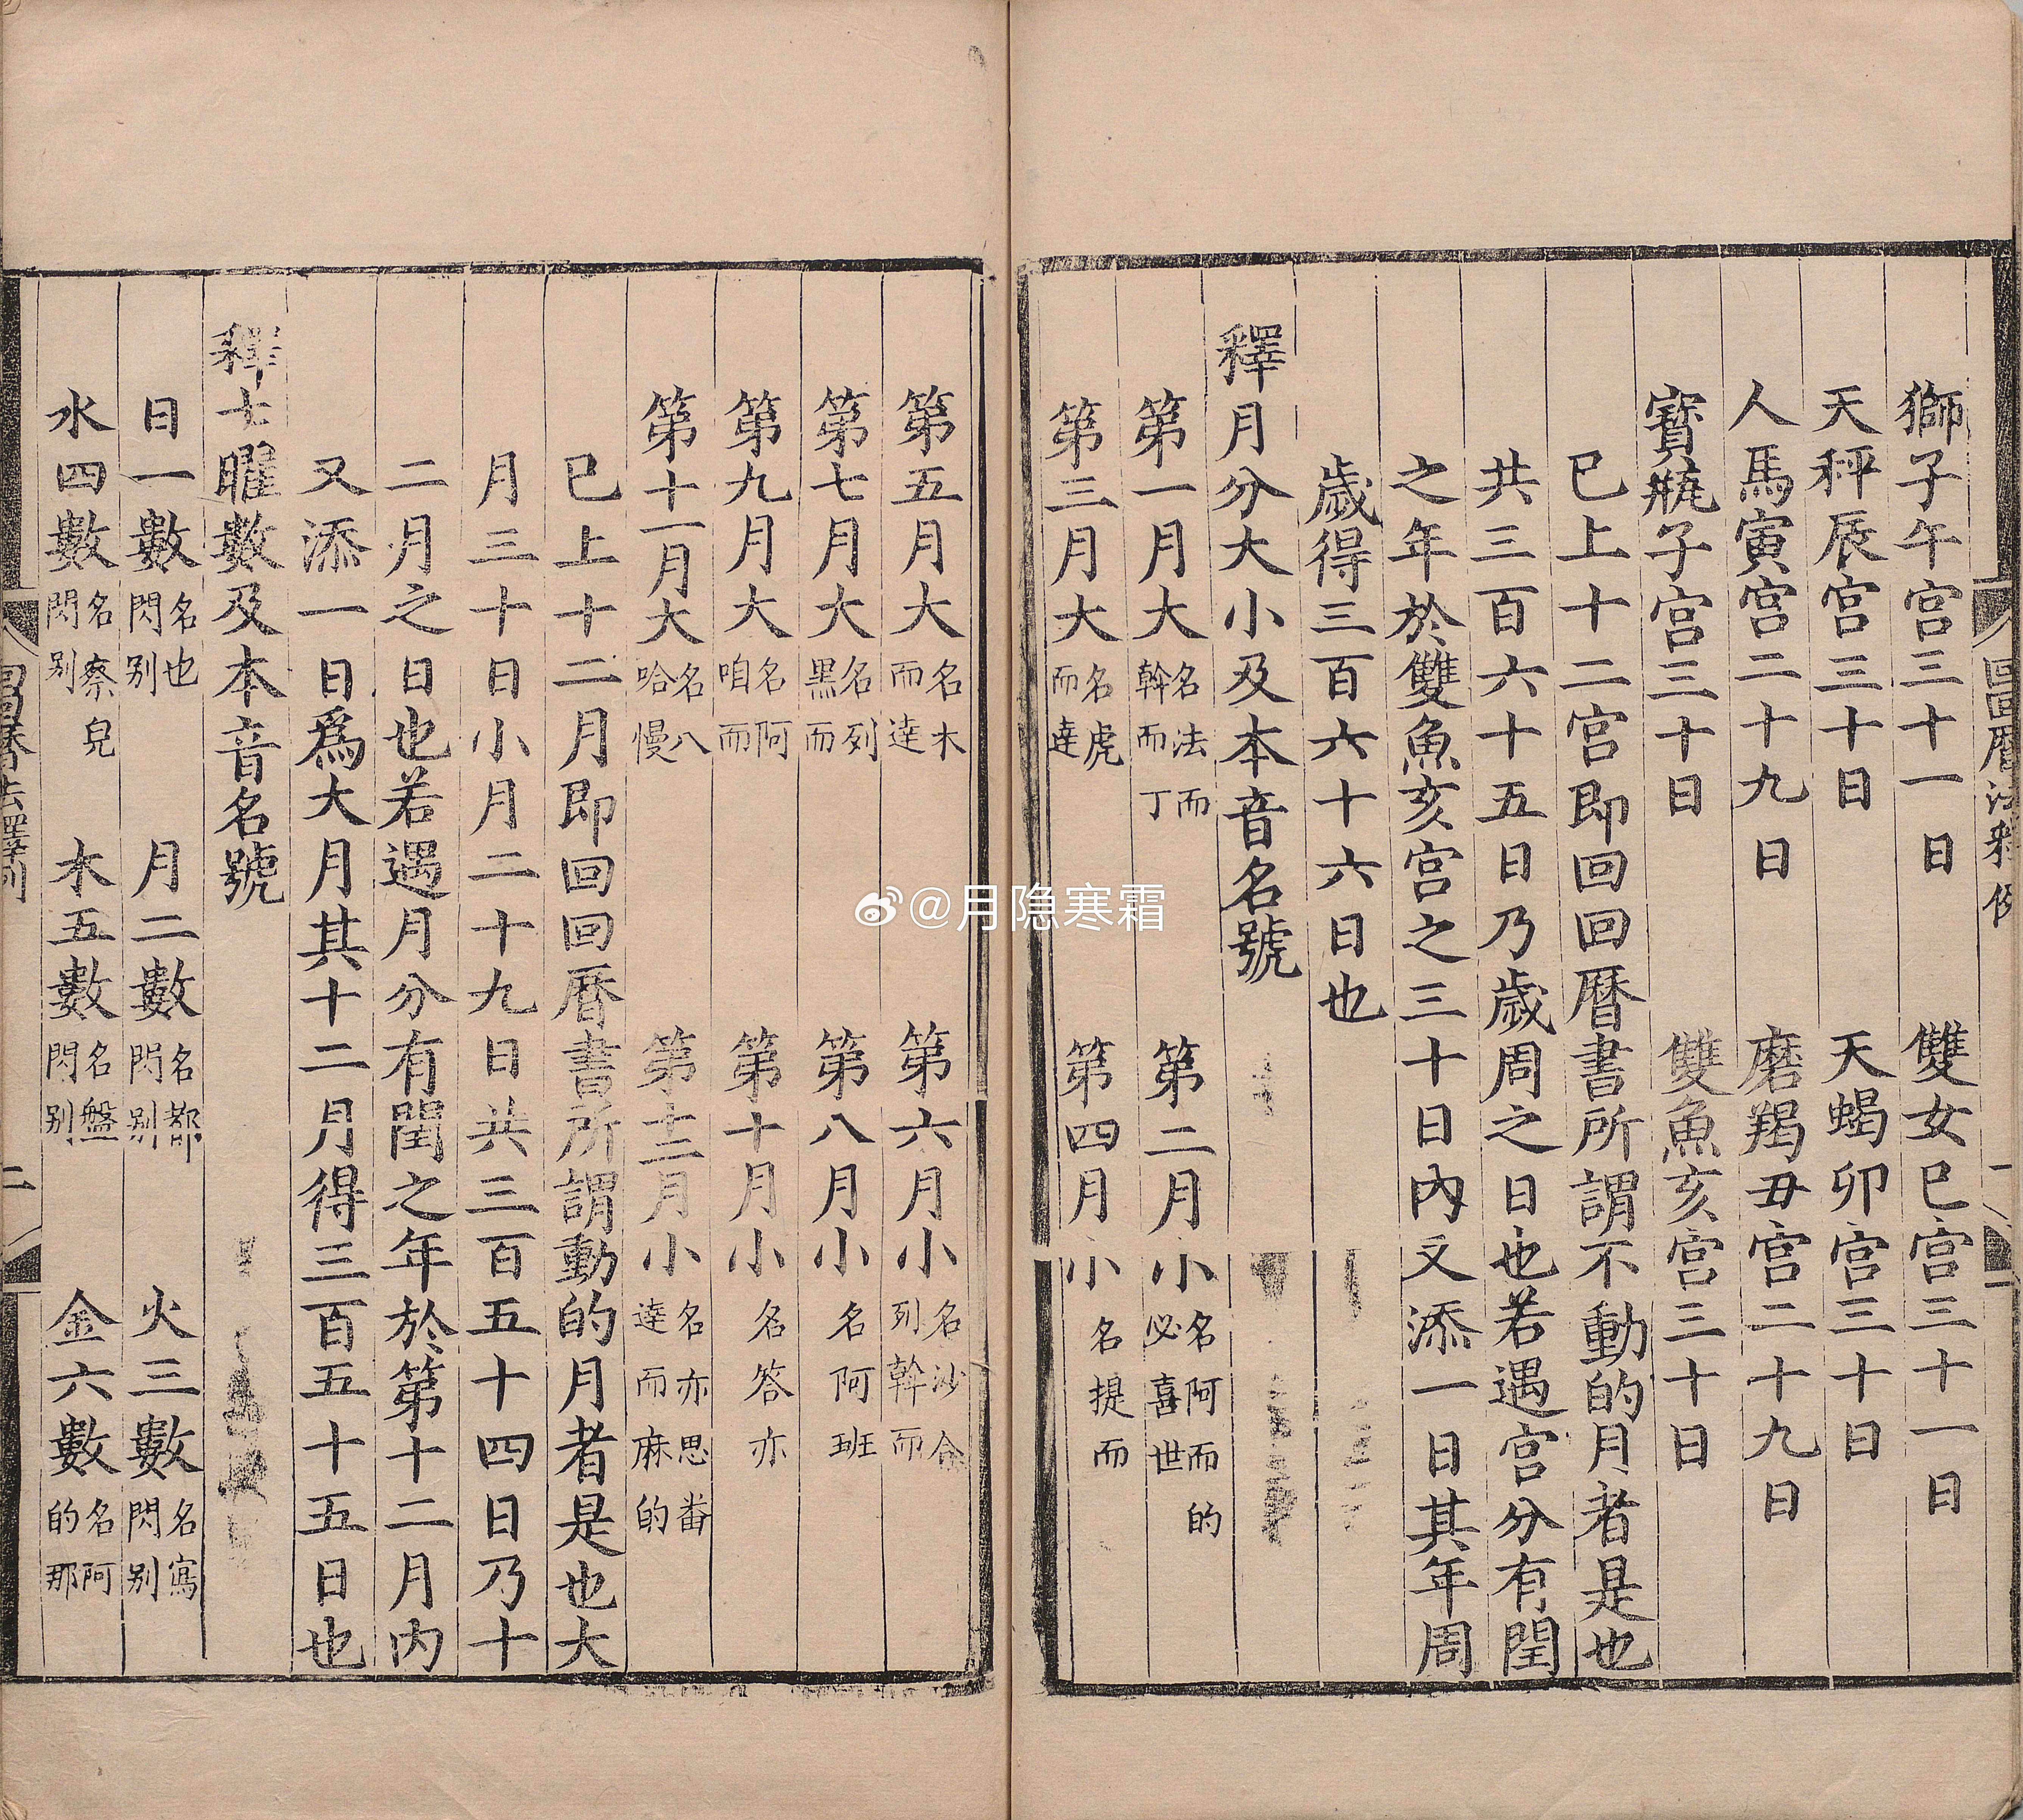 回回曆法釋例
獅子午宮三十一日 雙女巳宮三十一日
天秤辰宮三十日 天蝎卯宮三十日
人馬寅宮二十九日 磨羯丑宮二十九日
寳瓶子宮三十日 雙魚亥宮三十日
已上十二宮即回回曆書所謂不動的月者是也
共三百六十五日乃歲周之日也若遇宮分有閏
之年於雙魚亥宮之三十日內又添一日其年周
歲得三百六十六日也
釋月分大小及本音名號
第一月大名法而斡而丁 第二月小名阿而的必喜世
第三月大名虎而達 第四月小名提而
第五月大名木而達 第六月小名沙合列斡而
第七月大名列黑而 第八月小名阿班
第九月大名阿咱而 第十月小名答亦
第十一月大名八哈慢 第十二月小名亦思番達而麻的
已上十二月即回回曆書所謂動的月者是也大
月三十日小月二十九日共三百五十四日乃十
二月之日也若遇月分有閏之年於第十二月內
又添一日爲大月其十二月得三百五十五日也
釋七曜數及本音名號
日一數名也閃別 月二數名都閃別 火三數名寫閃別
水四數名察兒閃別 木五數名盤閃別 金六數名阿的那
二
@月隐寒霜